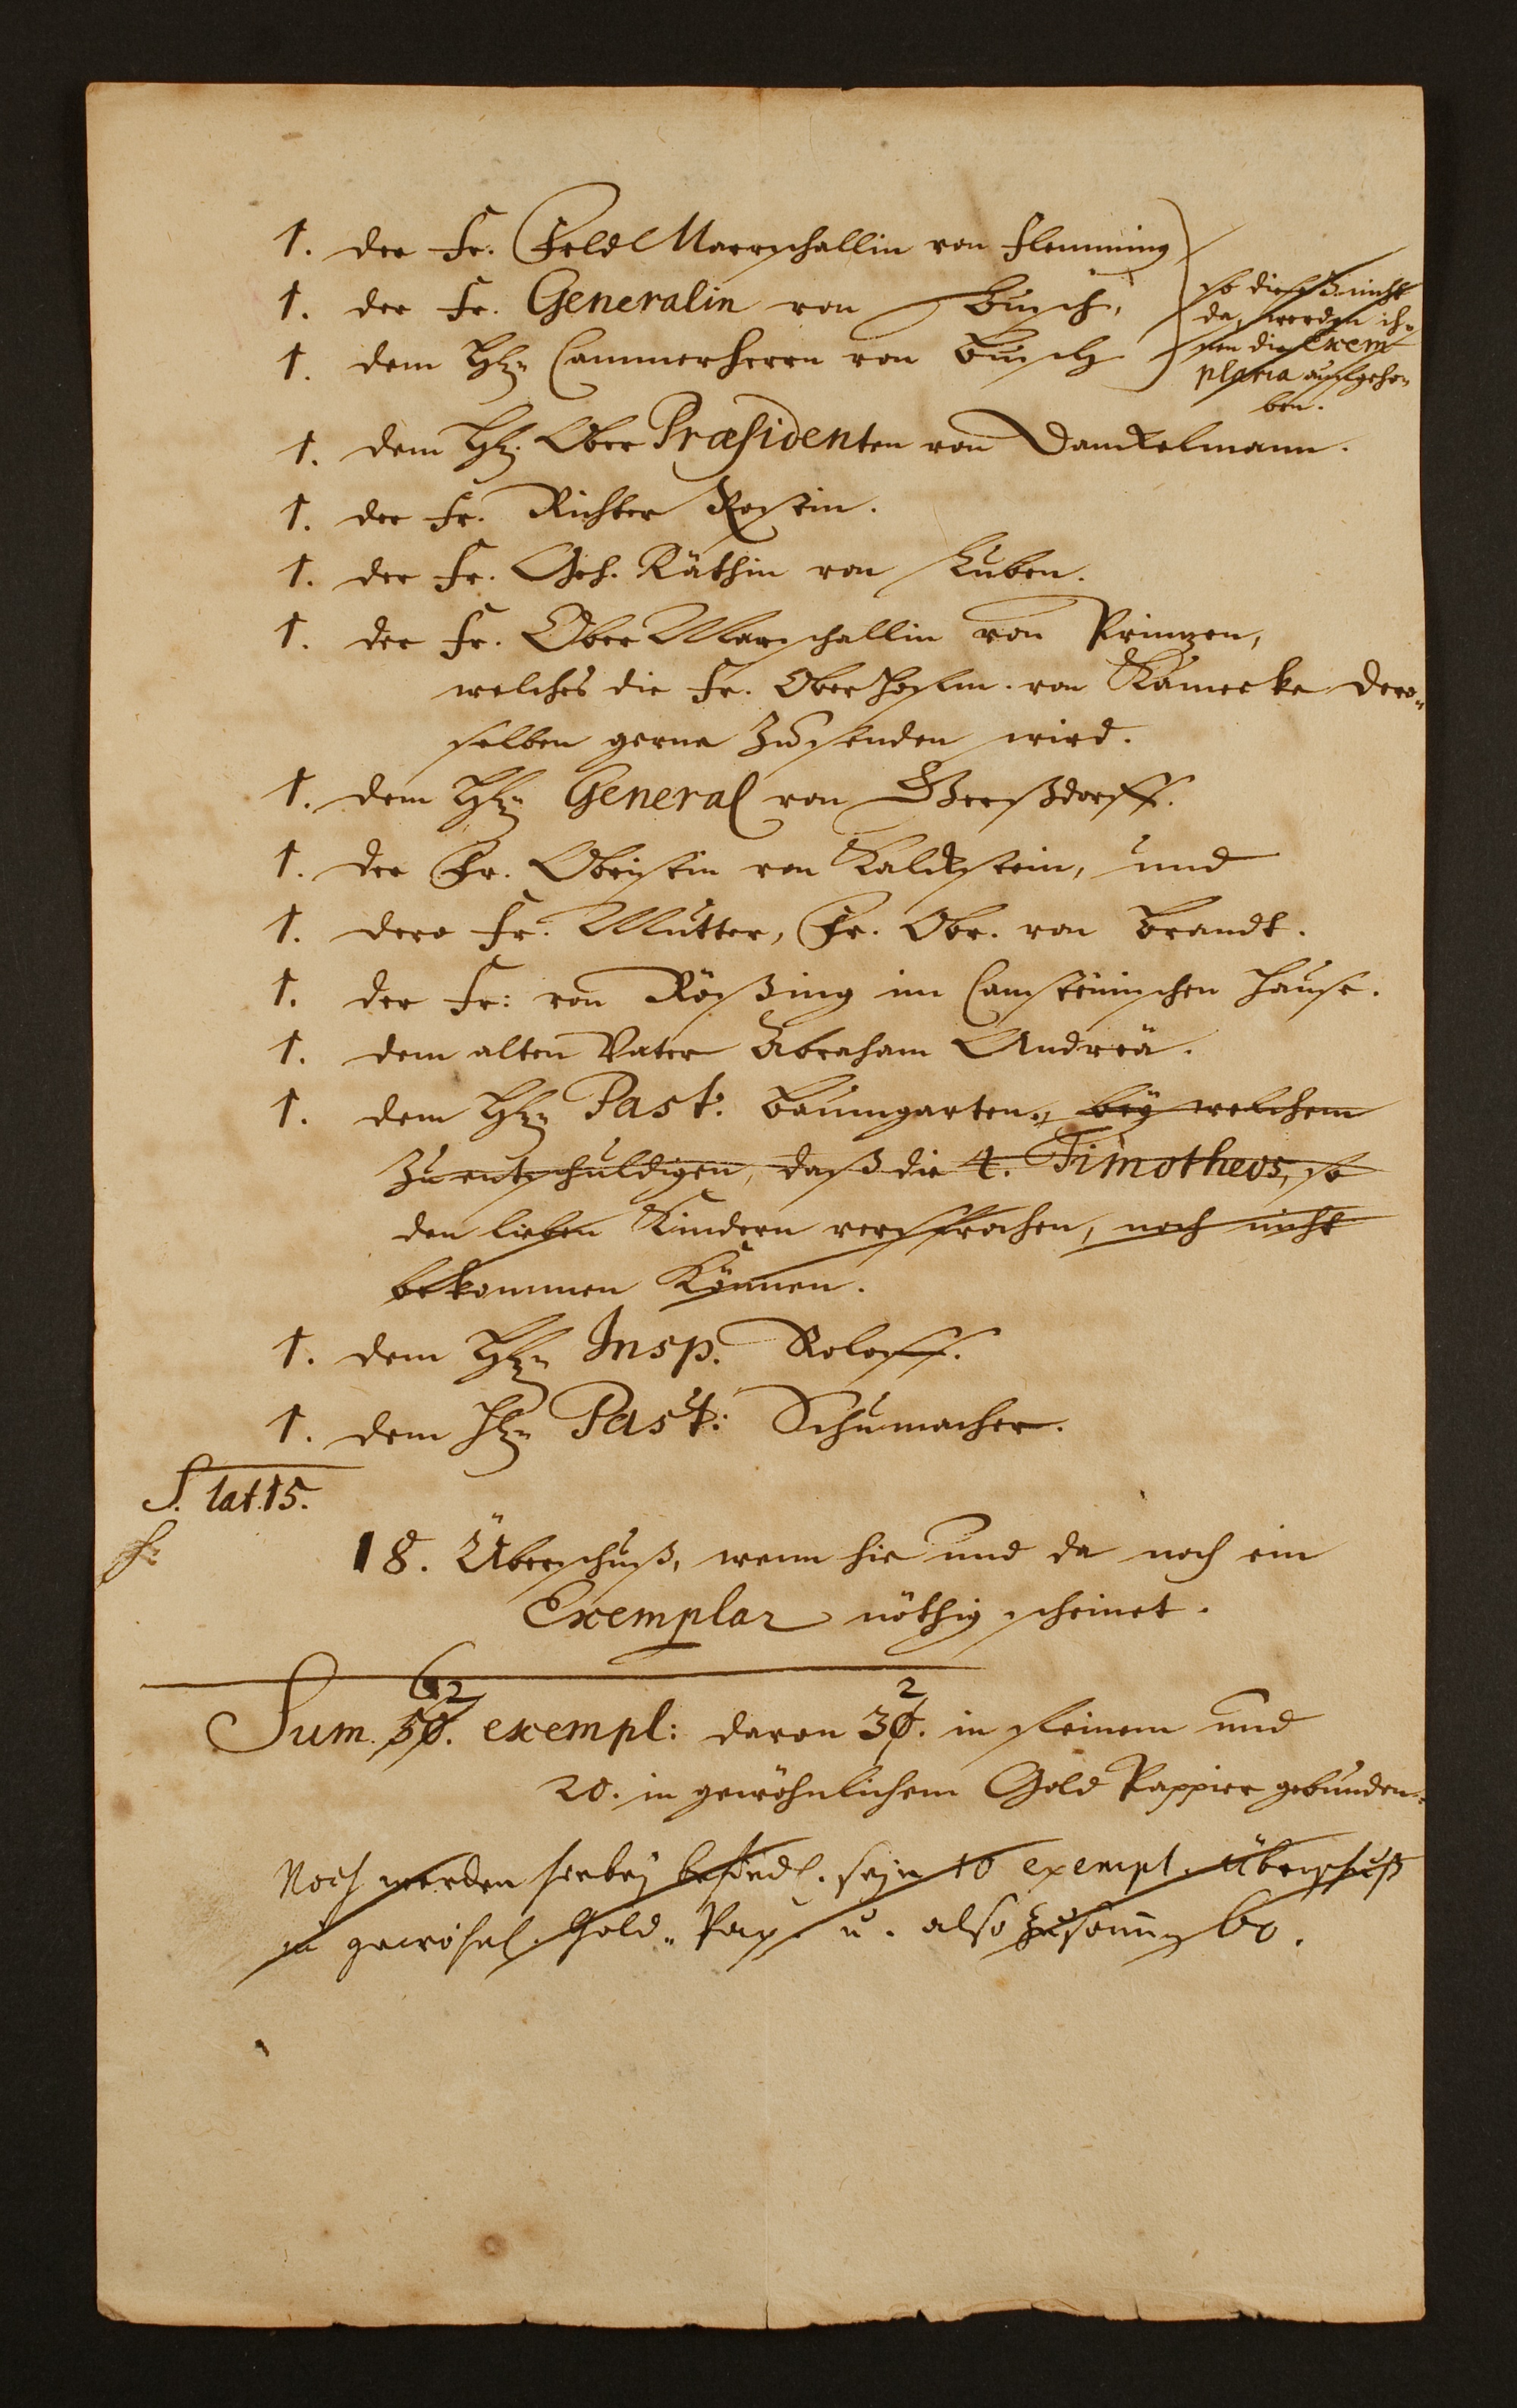 1. der Fr. FeldMarschallin von Flemming
1. der Fr. Generalin von Busch,
1. dem Hhn Cammerherrn von Busch
so diese nicht
da, werden ih-
nen die Exem
plaria aufgeho-
ben.
1. dem Hh. Ober Præsidenten von Danckelmann.
1. der Fr. Richter Rostin.
1. der Fr. Geh. Räthin von Luben.
1. der Fr. Ober Marschallin von Printzen,
welches die Fr. Ober Hofm. von Kamecke dero-
selben gerne zusenden wird.
1. dem Hhn General von Gersdorff.
1. der Fr. Obristin von Kalckstein, und
1. dero Fr. Mutter, Fr. Obr. von Brandt.
1. der Fr: von Rößing im Cansteinischen Hause.
1. dem alten Vater Abraham Andreä.
1. dem Hhn Past: Baumgarten, bey welchem
zu entschuldigen, daß die 4. Timotheos, so
den lieben Kindern versprochen, noch nicht
bekommen können.
1. dem Hhn Insp. Roloff.
1. dem Hhn Past: Schumacher.
S. lat. 15.
18. Überschuß, wenn hie und da noch ein
Exemplar nöthig scheinet.
62 2
Sum. 50. exempl: davon 30. in feinem und
20. in gewöhnlichem Gold Pappier gebunden.
Noch werden hierbey befindl. seyn 10 exempl. überschuß
in gewöhnl. Gold-Pap. u. also zusamn 60.